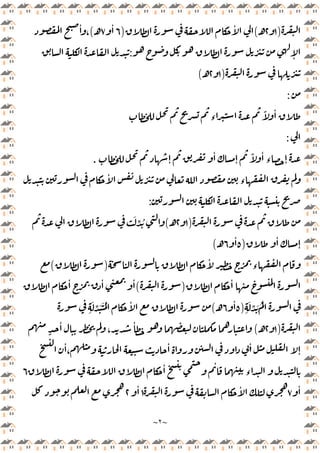 البقرة(١و٢هـ) إلى الأحكام اللاحقة في سورة الطلاق(٦أو٧هـ)، وأصبح المقصود
الإلهي من تنزيل سورة الطلاق هو وبكل وضوح هو: تبديل القاعدة الكلية السابق
تنزيلها في سورة البقرة(١و٢هـ)
من :
طلاق أولاً ثم عدة استبراء ثم تسريح ثم تحل للخطاب
إلي :
عدة إحصاء أولاً ثم إمساك أو تفريق ثم إشهاد ثم تحل للخطاب .
ولم يفرق الفقهاء بين مقصود الله تعالي من تنزيل نفس الأحكام في السورتين بتبديل
صريح بنسبة تبديل القاعدة الكلية بين السورتين:
من طلاق ثم عدة في سورة البقرة(١و٢هـ) والتي بُدِّلت في سورة الطلاق إلي عدة ثم
إمساك أو طلاق (٥و٦هـ)
وقام الفقهاء بمزج خطير لأحكام الطلاق بالسورة الناسخة(سورة الطلاق) مع
السورة المنسوخ منها أحكام الطلاق (سورة البقرة) أو بمعني أدق بمزج أحكام الطلاق
في السورة المُبَدِّلة(٥و٦هـ) من سورة الطلاق مع الأحكام المُتبدَّلة في سورة
البقرة(١و٢هـ) واعتبارهما مكملتان لبعضهما وهو خطأ شديد، ولم يخطر ببال أحدٍ منهم
إلا القليل مثل أبي داود في السنن ورواة أحاديث سبيعة الحارثية ومثلهم، أن النسخ
بالتبديل والبداء بينهما قائم وحتمي بنسخ أحكام الطلاق اللاحقة في سورة الطلاق٦
أو٧هجري لتلك الأحكام السابقة في سورة البقرة١أو٢ هجري مع العلم بوجود كل
~٢~